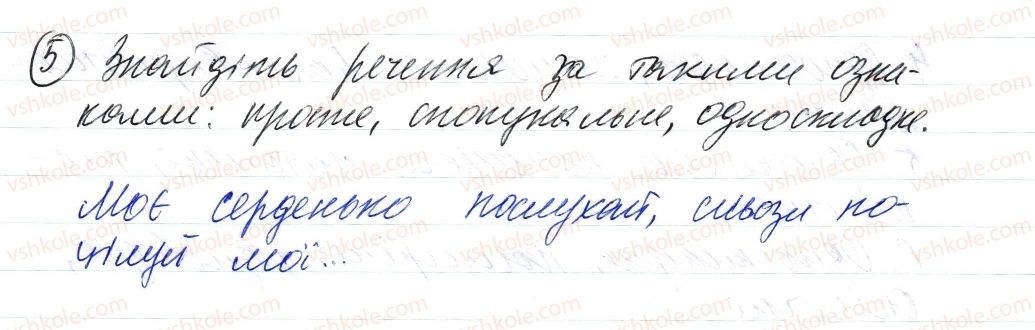 5 Знайдіть речення за такими озна-
ками: просте, спонукальне, односкладне.
Моє серденько послухай, сльози по-
цілуй мої...